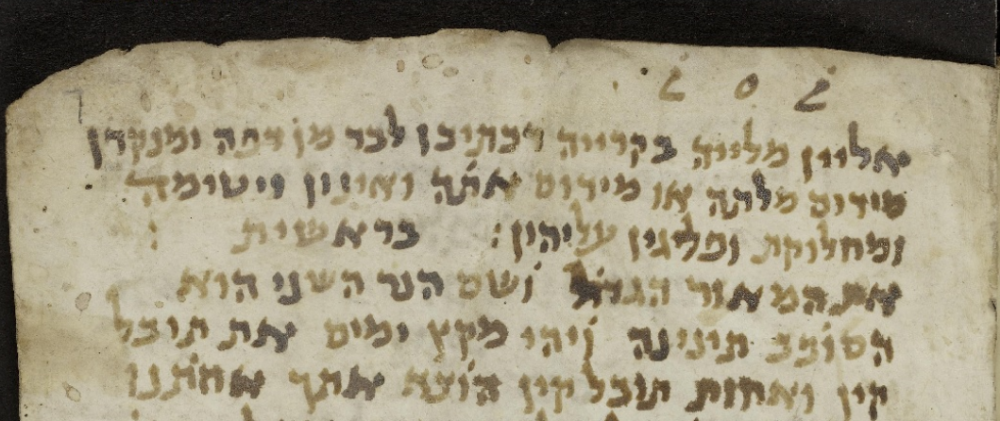 אליין מלייה בקרייה דכתיבן לבר מן דפה ומנקדן
מידים מלתה או מידום אתה ואינון וישומה
ומחלוקת ופליגין עליהין: בראשית :
את המאור הגדל ושם הנהר השני הוא
הסובב תינינה ויהי מקץ ימים את תובל
קין ואחות תובל קין הוצא אתך אחתנו